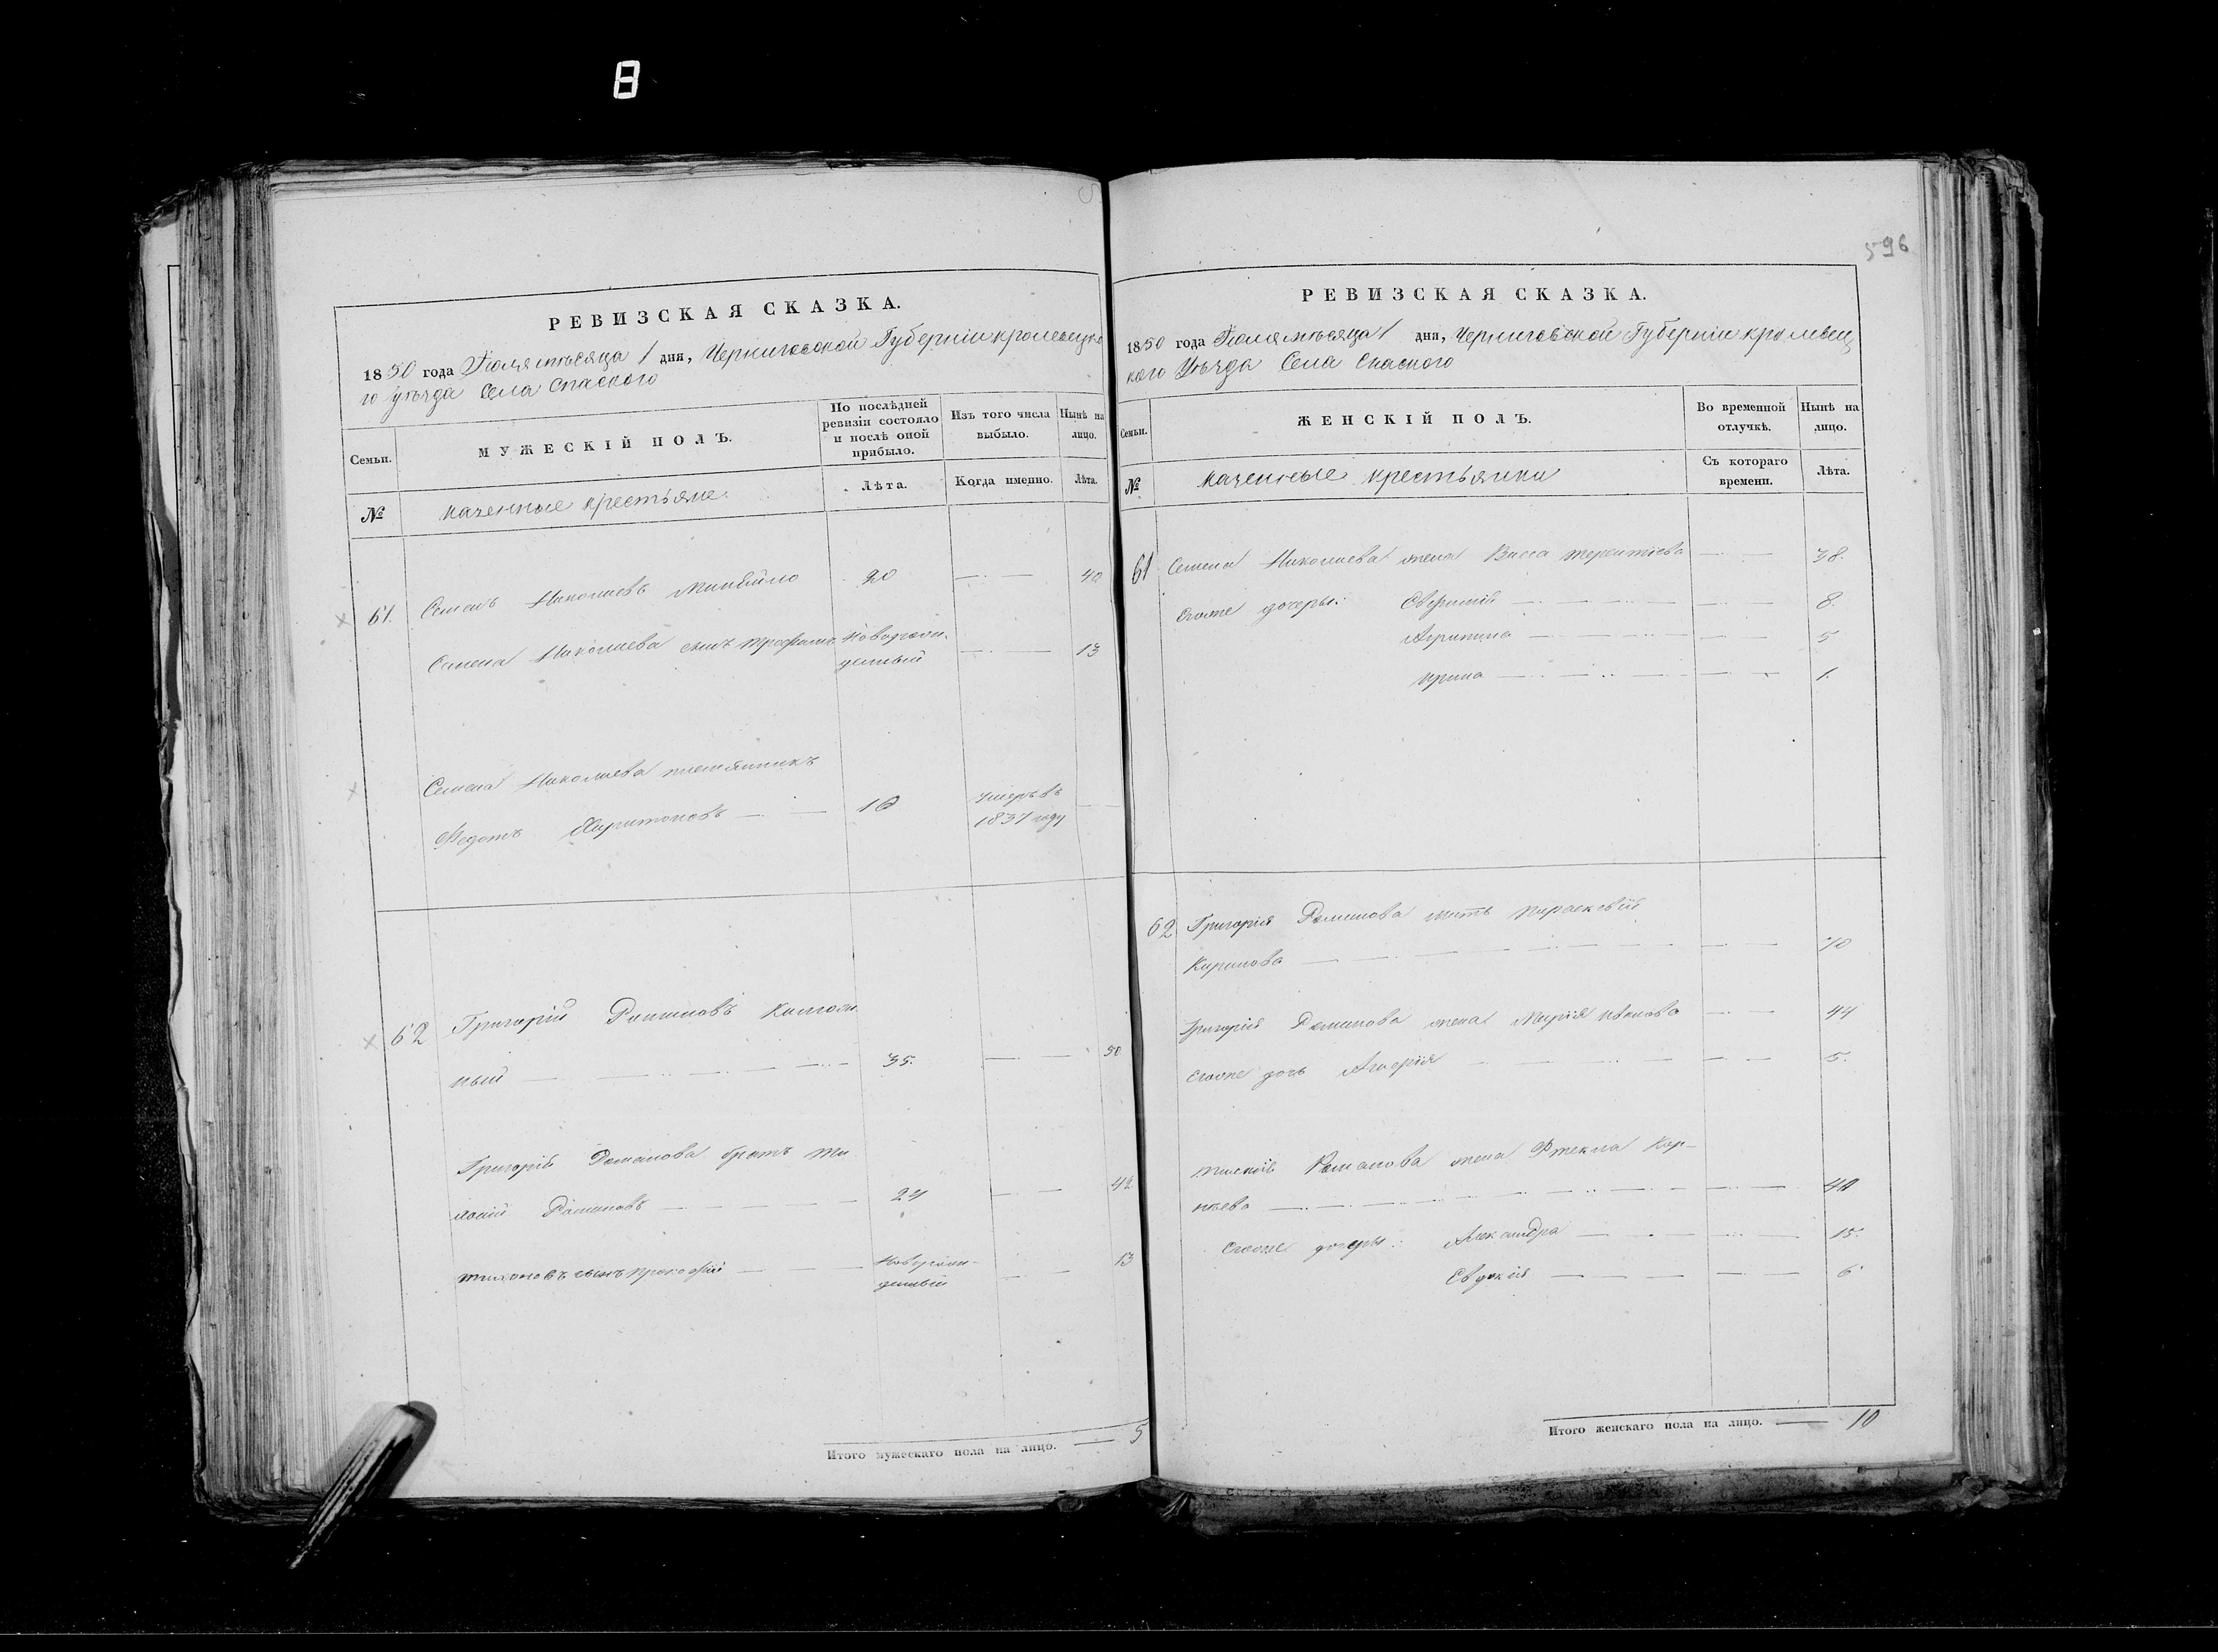 8
РЕВИЗСКАЯ СКАЗКА.
1850 года Іюля мѣсяца 1 дня, Черниговской Губерніи кролевецка
го уѣзда Села Спаского
Семьи.
МУЖЕСКІЙ ПОЛЪ.
По послѣдней ревизіи состояло и послѣ оной прибыло.
Изъ того числа выбыло.
Нынѣ на лицо.
№
казенные крестьяне.
Лѣта.
Когда именно.
Лѣта.
61. Семенъ Николаевъ 20 40
Семена Николаева сынъ Трофимъ Новорож
денный 13
Семена Николаева племянникъ
Федотъ Харитоновъ 16 умеръ въ
1837 году
62 Григорій Романовъ
ный 35. 50
Григорія Романова братъ Ти
Романовъ 24 42
Тихоновъ сынъ Прокофій Новорож-
денный 13
Итого мужескаго пола на лицо. 5
596
РЕВИЗСКАЯ СКАЗКА.
1850 года Іюля мѣсяца 1 дня, Черниговской Губерніи кролевец
кого Уѣзда Села Спаского
Семьи.
ЖЕНСКІЙ ПОЛЪ.
Во временной отлучкѣ.
Нынѣ на лицо.
№
казенные крестьянки
Съ котораго времени.
Лѣта.
61 Семена Николаева жена Васса Терентіева 38.
Егоже дочеры: Евфимія 8.
Агрипина 5
Ирина 1.
62 Григорія Романова мать Параскевія
Карпова 70
Григорія Романова жена Марія Иванова 44
Егоже дочь 5.
Романова жена Фекла Кор-
нѣева 40
Егоже дочеры: Александра 15.
Евдокія 6
Итого женскаго пола на лицо. 10